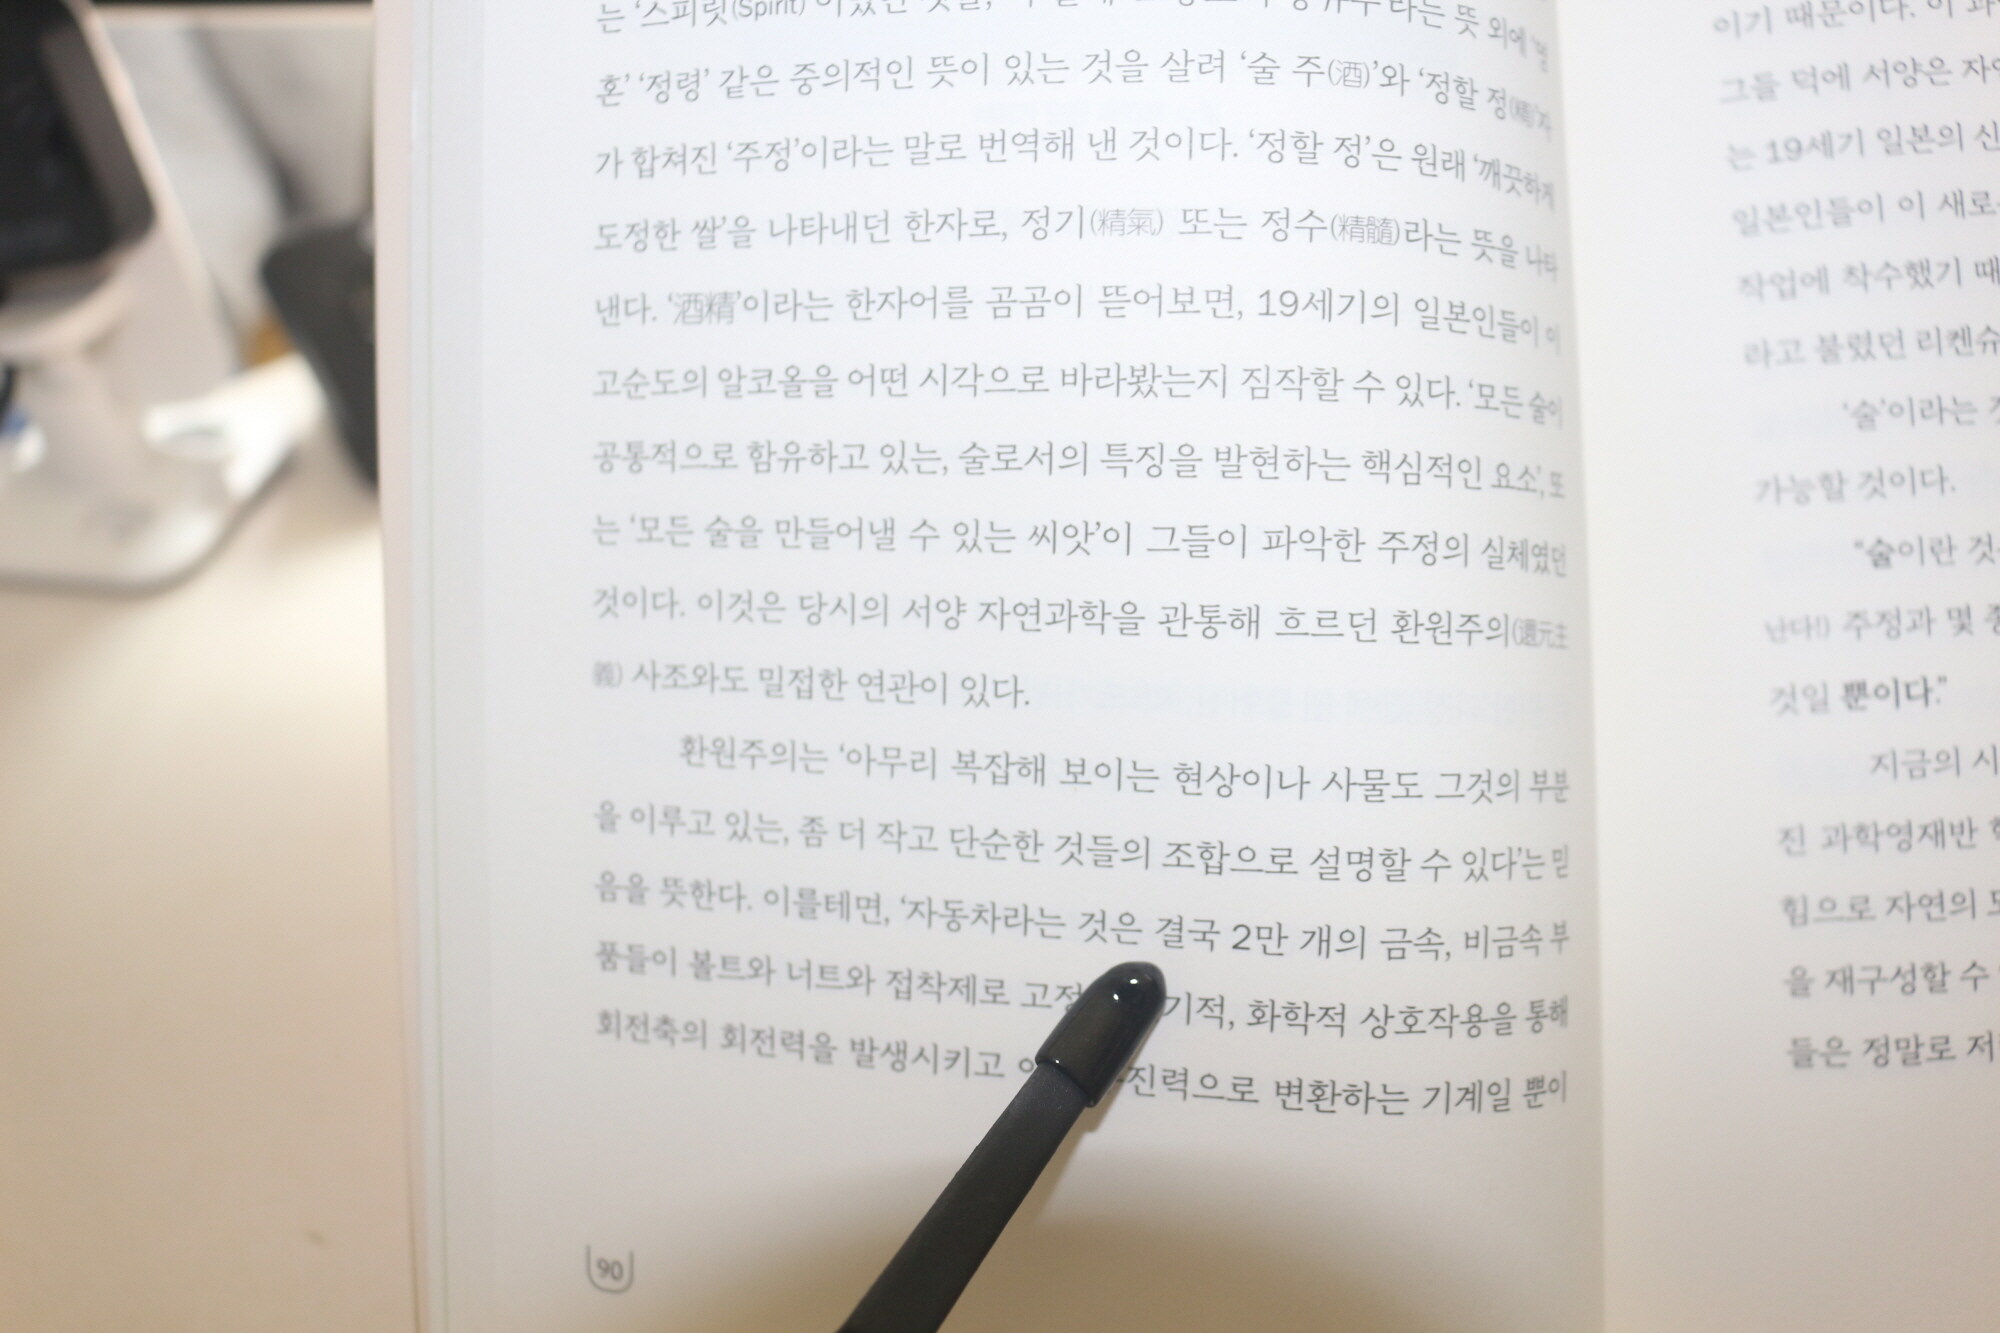 는 '스피릿(Spirit)' 라는 뜻 외에 '영
혼' '정령' 같은 중의적인 뜻이 있는 것을 살려 '술 주(酒)'와 '정할 정(精)'자
가 합쳐진 '주정'이라는 말로 번역해 낸 것이다. '정할 정'은 원래 '깨끗하게
도정한 쌀'을 나타내던 한자로, 정기(精氣) 또는 정수(精髓)라는 뜻을 나타
낸다. '酒精'이라는 한자어를 곰곰이 뜯어보면, 19세기의 일본인들이 이
고순도의 알코올을 어떤 시각으로 바라봤는지 짐작할 수 있다. '모든 술이
공통적으로 함유하고 있는, 술로서의 특징을 발현하는 핵심적인 요소', 또
는 '모든 술을 만들어낼 수 있는 씨앗'이 그들이 파악한 주정의 실체였던
것이다. 이것은 당시의 서양 자연과학을 관통해 흐르던 환원주의(還元主
義) 사조와도 밀접한 연관이 있다.
환원주의는 '아무리 복잡해 보이는 현상이나 사물도 그것의 부분
을 이루고 있는, 좀 더 작고 단순한 것들의 조합으로 설명할 수 있다'는 믿
음을 뜻한다. 이를테면, '자동차라는 것은 결국 2만 개의 금속, 비금속 부
품들이 볼트와 너트와 접착제로 고정 기적, 화학적 상호작용을 통해
회전축의 회전력을 발생시키고 진력으로 변환하는 기계일 뿐이
90
이기 때문이다. 이
그들 덕에 서양은 자연
는 19세기 일본의 신
일본인들이 이 새로
작업에 착수했기 때
라고 불렸던 리켄슈
'술'이라는
가능할 것이다.
"술이란 것
난다!) 주정과 몇
것일 뿐이다."
지금의 시
진 과학영재반
힘으로 자연의
을 재구성할 수
들은 정말로 저